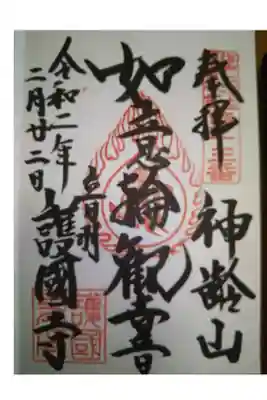 奉拝
神齡山
如意輪観音
音羽
護國寺
令和二年
二月廿二日